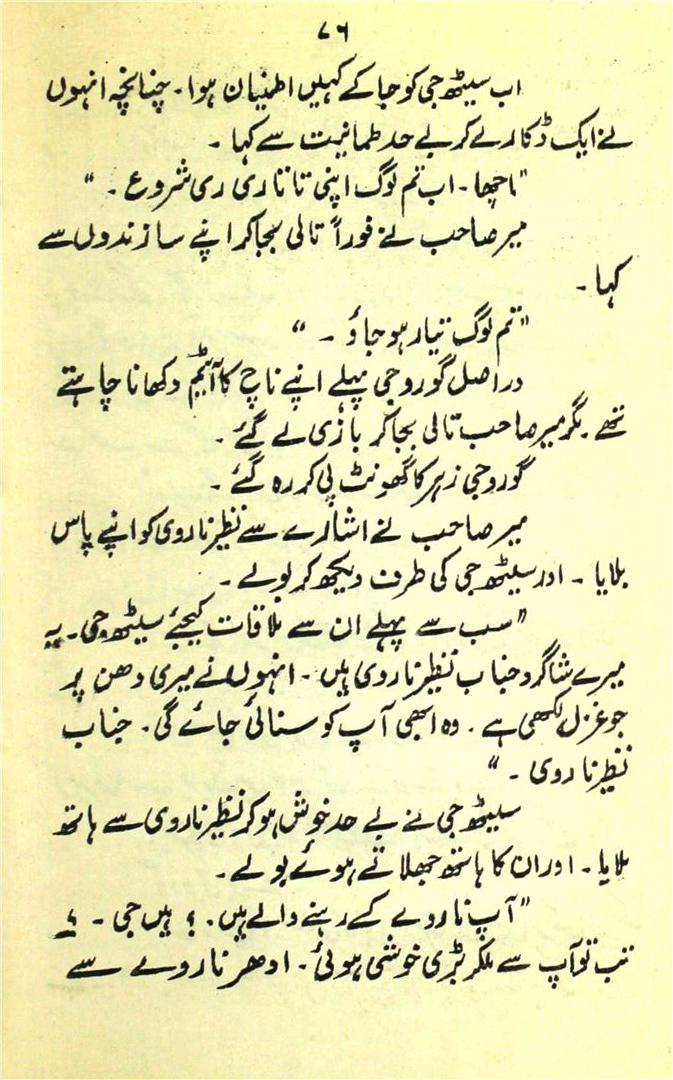 ۷۶
اب سیٹھ جی کو جا کے کہیں اطمنیان ہوا۔ چنانچہ انہوں
نے ایک ڈکار لے کر بے حد طمانیت سے کہا۔
"اچھا۔ اب تم لوگ اپنی تا نا ری ری شروع۔"
میر صاحب نے فوراً تالی بجا کر اپنے سازندوں سے
کہا۔
"تم لوگ تیار ہو جاؤ۔"
دراصل گورو جی پہلے اپنے ناچ کا آئیٹم دکھانا چاہتے
تھے۔ مگر میر صاحب تالی بجا کر بازی لے گئے۔
گورو جی زہر کا گھونٹ پی کر رہ گئے۔
میر صاحب نے اشارے سے نظیر ناروی کو اپنے پاس
بلایا۔ اور سیٹھ جی کی طرف دیکھ کر بولے۔
"سب سے پہلے ان سے ملاقات کیجئے سیٹھ جی۔ یہ
میرے شاگرد جناب نظیر ناروی ہیں۔ انہوں نے میری دھن پر
جو غزل لکھی ہے۔ وہ ابھی آپ کو سنائی جائے گی۔ جناب
نظیر ناروی۔"
سیٹھ جی نے بے حد خوش ہو کر نظیر ناروی سے ہاتھ
ملایا۔ اور ان کا ہاتھ جھلاتے ہوئے بولے۔
"آپ ناروے کے رہنے والے ہیں۔؟ ہیں جی۔؟
تب تو آپ سے ملکر بڑی خوشی ہوئی۔ ادھر ناروے سے